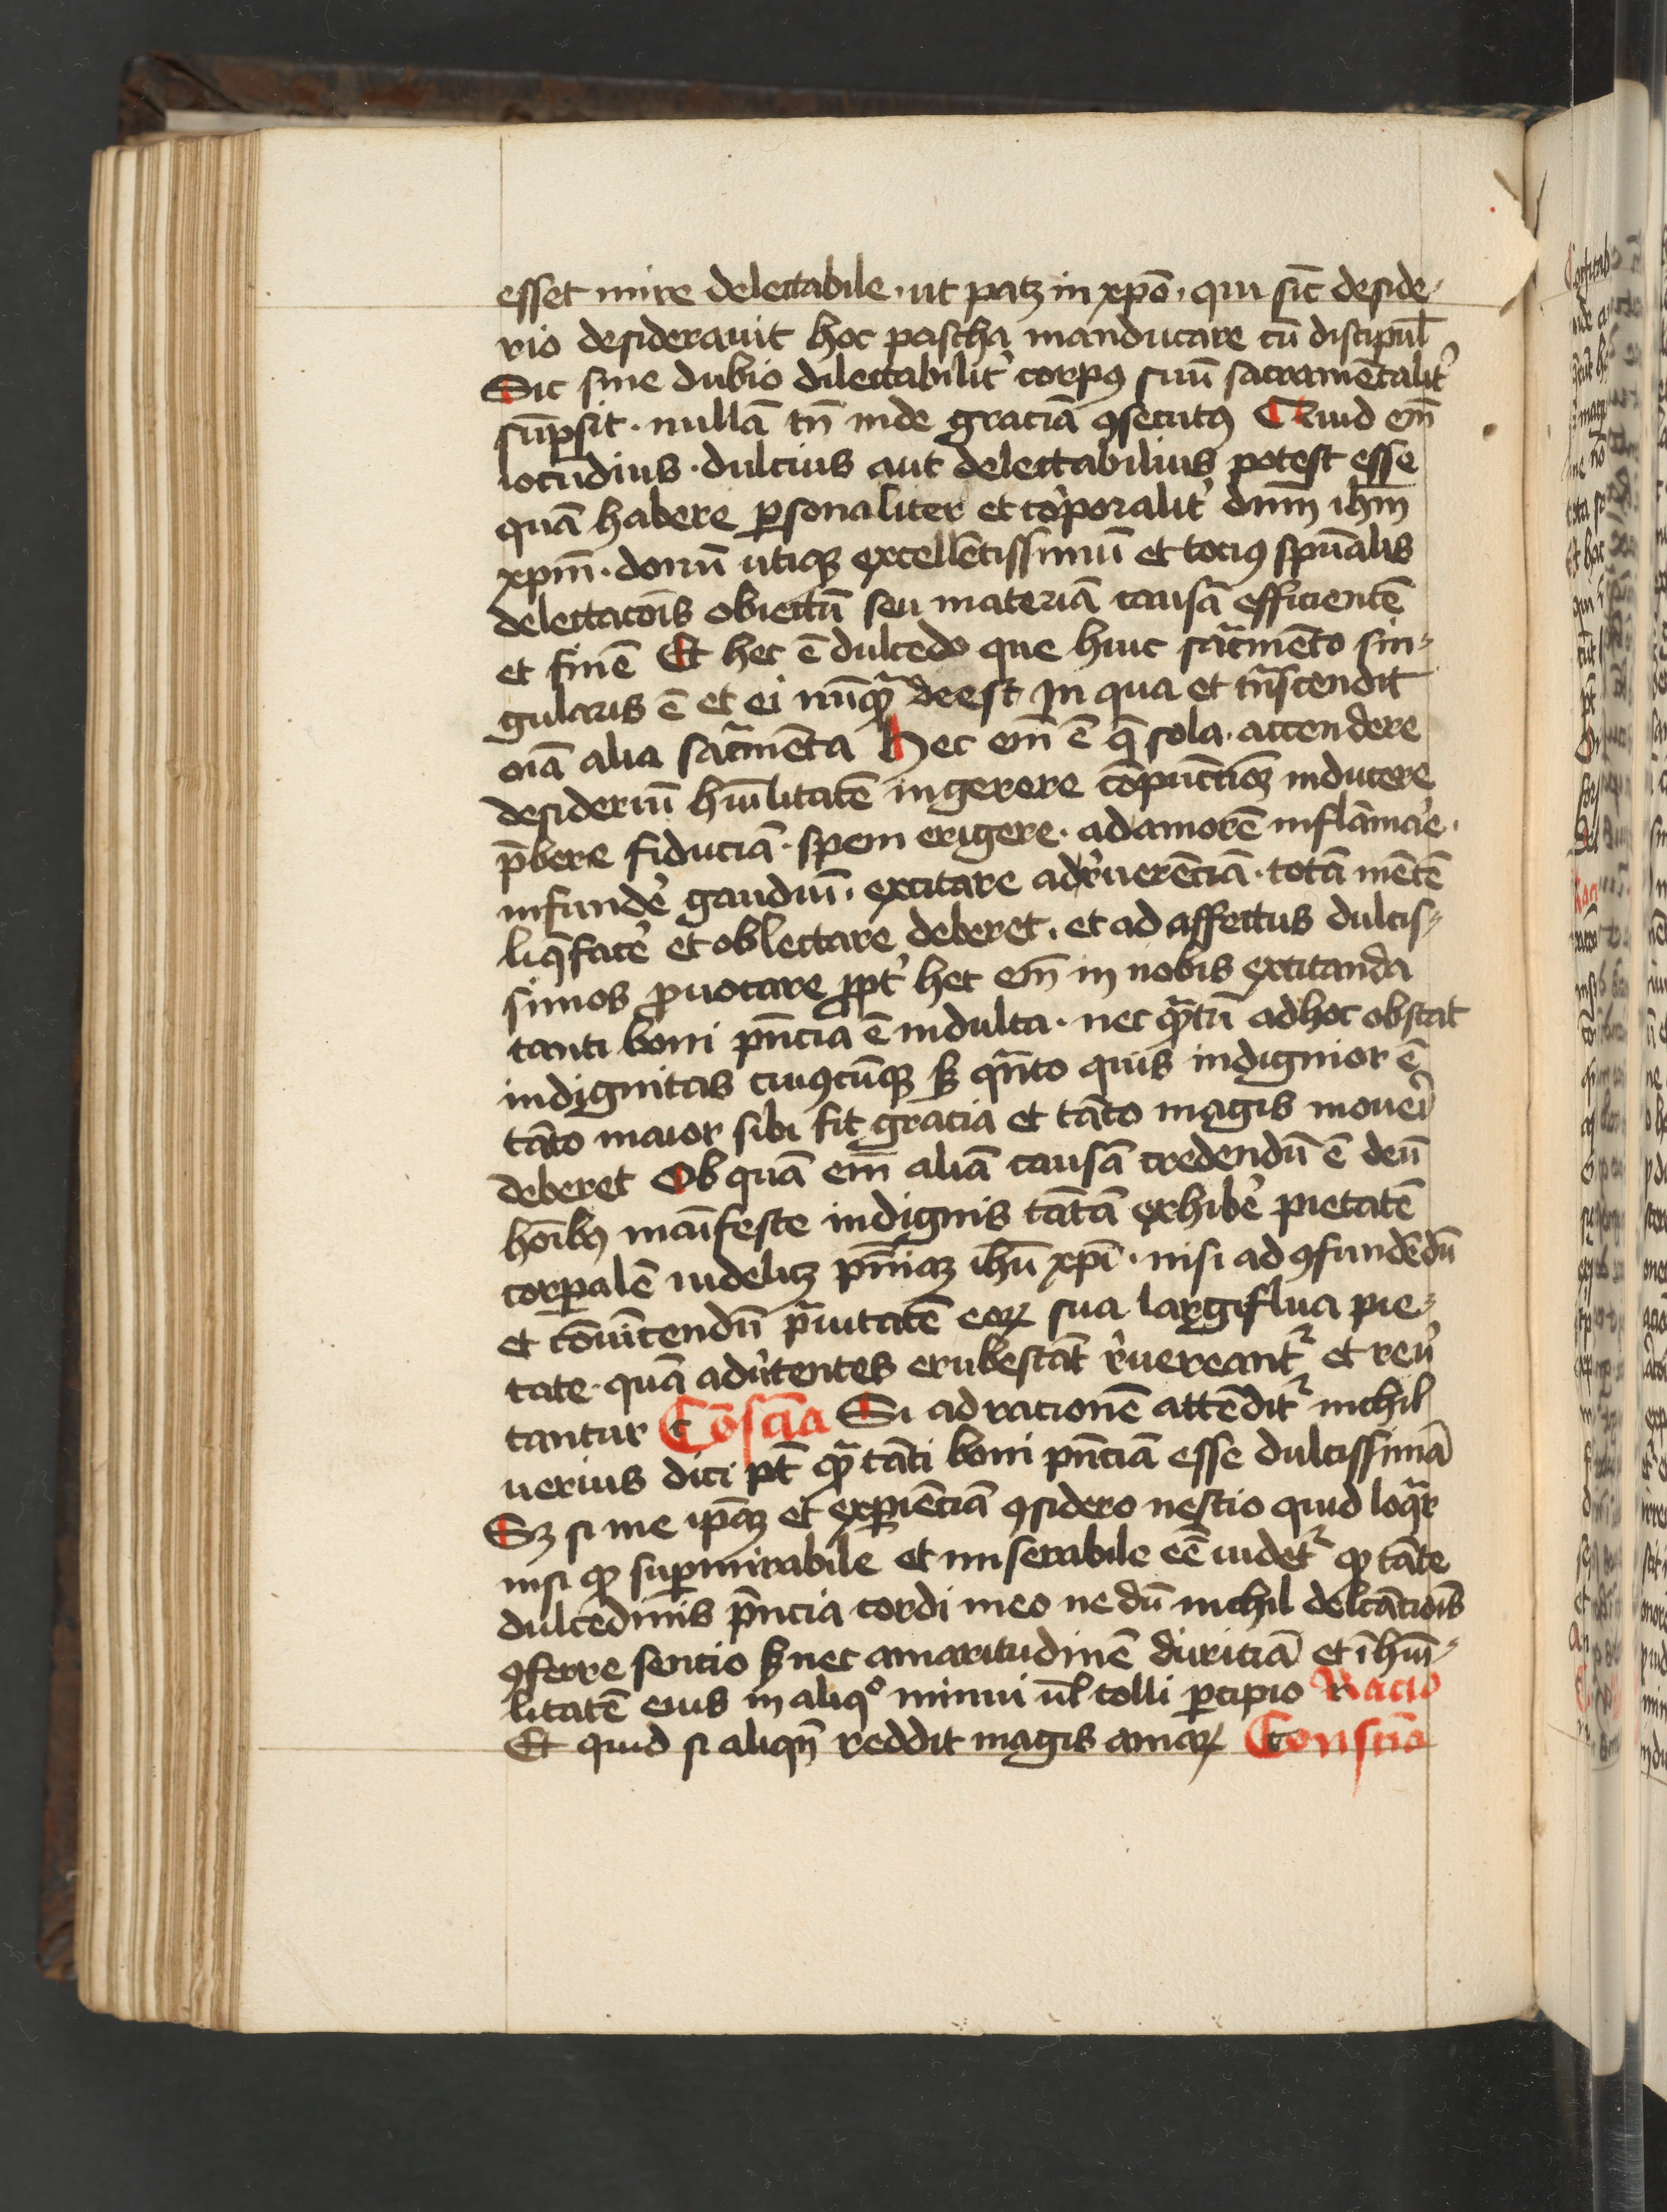 esset mire delectabile · ut patꝫ in xp̄o · qui sic̄ deside-
rio desiderauit hoc pascha manducare cū discipul̄
Sic sine dubio dilectabilit᷒ corpꝯ suū sacramētalit᷒
sūpsit · nullā tn̄ inde graciā ꝯsecutꝯ Quid em̄
iocūdius · dulcius aut delectabilius potest esse
quā habere ꝑsonaliter et corporalit᷒ dn̄m ihm̄
xpm̄ · donū utiqꝫ excellētissimū et tociꝯ spūalis
delectacōis obiectū seu materiā causā efficientē
et finē Et hec ē dulcedo que huic sac̄mēto sin-
gularis ē et ei nūqᷓ deest In qua et tn̄scendit
oīa alia sac̄mēta Hec em̄ ē q̄ sola · accendere
desideriū hūilitatē ingerere cōpunctiōꝫ inducere
p̄bere fiduciā · spem erigere · ad amorē inflāmar̄e ·
infundē gaudiū · excitare ad r̄uerēciā · totā mētē
liq̄facē et oblectare deberet · et ad affectus dulcis-
simos ꝓuocare ꝓpt᷒ hec em̄ in nobis excitanda
tanti boni pn̄cia ē indulta · nec qᷓtū ad hoc obstat
indignitas cuiꝯcūqꝫ sꝫ qn̄to quis indignior ē
tāto maior sibi fit gracia et tāto magis moueri
deberet Ob quā em̄ aliā causā credendū ē deū
hoībꝫ māifeste indignis tātā exhibē pietatē
corꝑalē uidelicꝫ pn̄ciaꝫ ihū xpī · nisi ad ꝯfundēdū
et cōuincendū prauitatē eoꝝ sua largiflua pie-
tate · quā aduertentes erubescāt r̄uereantᷣ et reū
tantur Cōsciā Si ad racionē attēditᷣ nichil
uerius dici pt̄ qᷓ tāti boni pn̄ciā esse dulcissimā
Sꝫ si me ipaꝫ et exꝑiēciā ꝯsidero nescio quid loqᷓr
nisi qꝫ suꝑmirabile et miserabile eē uidetᷣ qꝫ tāte
dulcedinis pn̄cia cordi meo ne dū nichil delc̄acōis
ꝯferre sencio sꝫ nec amaritudinē duriciā et īhūi-
litatē eius in aliqͦ minui ul̄ tolli ꝑcipio Racio
Et quid si aliqn̄ reddit magis amaꝝ Consciā